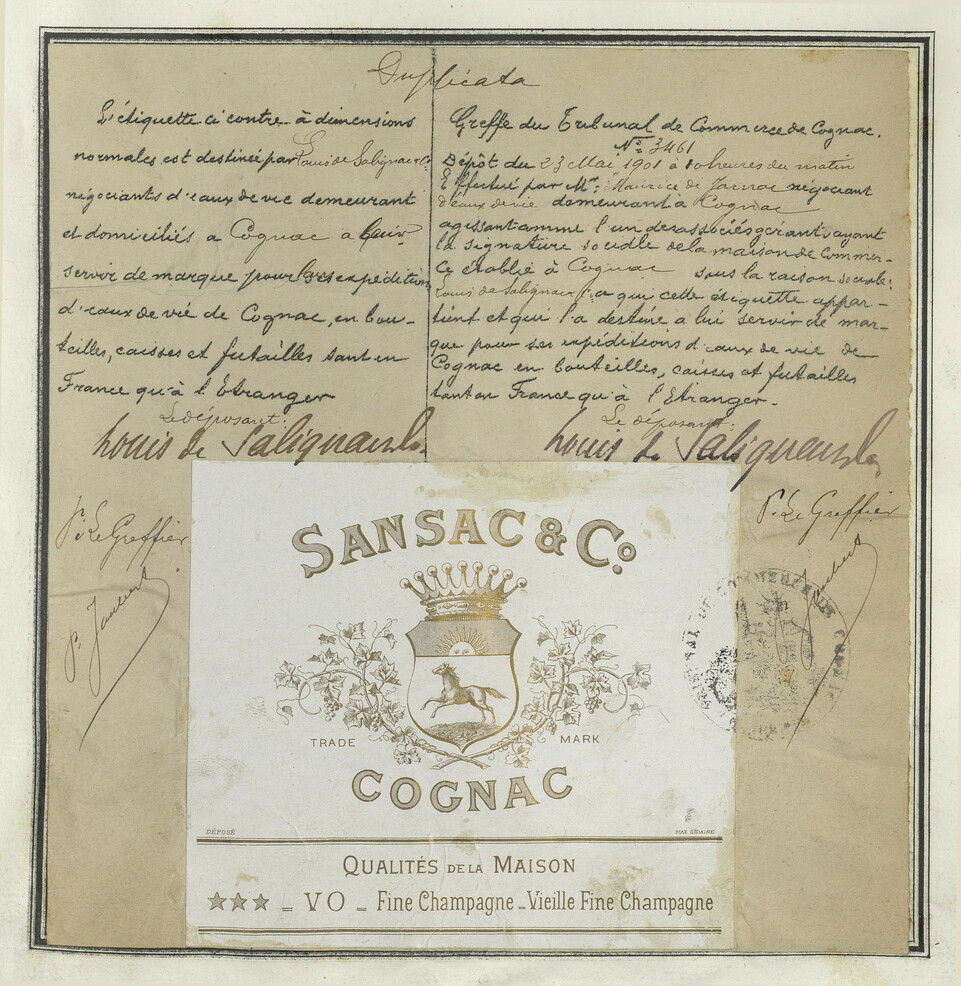 Duplicata
L'étiquette ci contre à dimensions
normales est destinée par Louis de Salignac & Co
négociants d'eaux de vie demeurant
et domiciliés a Cognac a leur
servir de marque pour les expéditions
d'eaux de vie de Cognac, en bou-
teilles, caisses et futailles tant en
France qu'à l'Etranger
Le déposant:
Louis de Salignac & Co
P. Le Greffier
P. Jaubert
Greffe du Tribunal de Commerce de Cognac.
No 3461
Dépôt du 23 Mai 1901 à 10 heures du matin
Effectué par Mr: Maurice de Jarnac négociant
d'eaux de vie demeurant a Cognac
agissant comme l'un des associés gérants, ayant
la signature sociale de la maison de Commer-
ce établie à Cognac sous la raison sociale:
Louis de Salignac & Co a qui cette étiquette appar-
tient et qui l'a destiné a lui servir de mar-
que pour ses expéditions d'eaux de vie de
Cognac en bouteilles, caisses et futailles
tant en France qu'à l'Etranger.
Le déposant:
Louis de Salignac & Co
P. Le Greffier
Jaubert
SANSAC & Co
TRADE MARK
COGNAC
DÉPOSÉ
QUALITÉS DE LA MAISON
★★★ _ VO _ Fine Champagne _ Vieille Fine Champagne